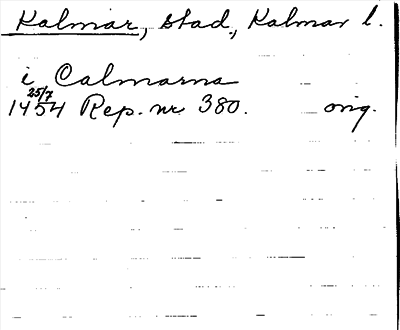 Kalmar, stad, Kalmar l.
i Calmarna
25/7
1454 Rep. nr. 380. orig.